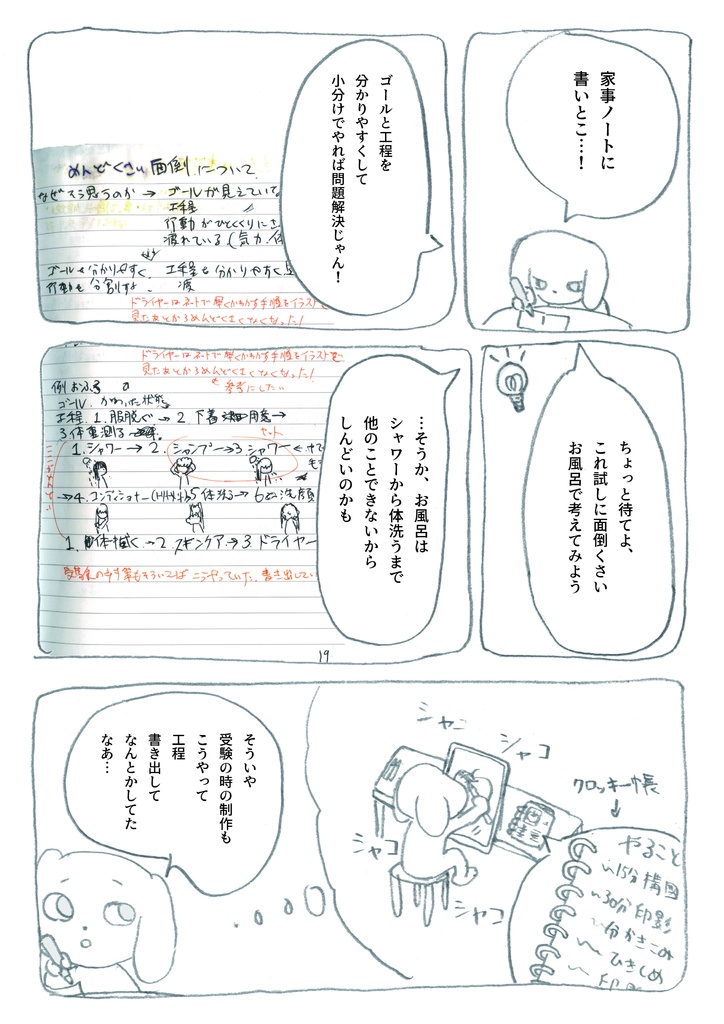 家事ノートに
書いとこ…！
ゴールと工程を
分かりやすくして
小分けでやれば問題解決じゃん！
めんどくさい面倒について
なぜそう思うのか → ゴールが見えていて
工程 〃
行動がひとくくりにさ
疲れている(気力、体
ゴールも分かりやすく、工程も分かりやすく
行動も分割する
ドライヤーはネットで早くかわかす手順をイラストで
見たあとからめんどくさくなくなった！
ちょっと待てよ、
これ試しに面倒くさい
お風呂で考えてみよう
…そうか、お風呂は
シャワーから体洗うまで
他のことできないから
しんどいのかも
ドライヤーはネットで早くかわかす手順をイラストで
見たあとからめんどくさくなくなった！
参考にしたい
例 おふろ
ゴール、かわいた状態
工程 1.服脱ぐ → 2 下着 用意→
3体重測る
1.シャワー → 2.シャンプー→3シャワー
→4.コンディショナー 5体洗う→6 洗顔
1. 体拭く→2 スキンケア→3.ドライヤー
19
そういや
受験の時の制作も
こうやって
工程
書き出して
なんとかしてた
なあ…
シャコ
シャコ
シャコ
シャコ
クロッキー帳
やること
〜15分構図
〜30分印影
〜分かきこみ
〜ひきしめ